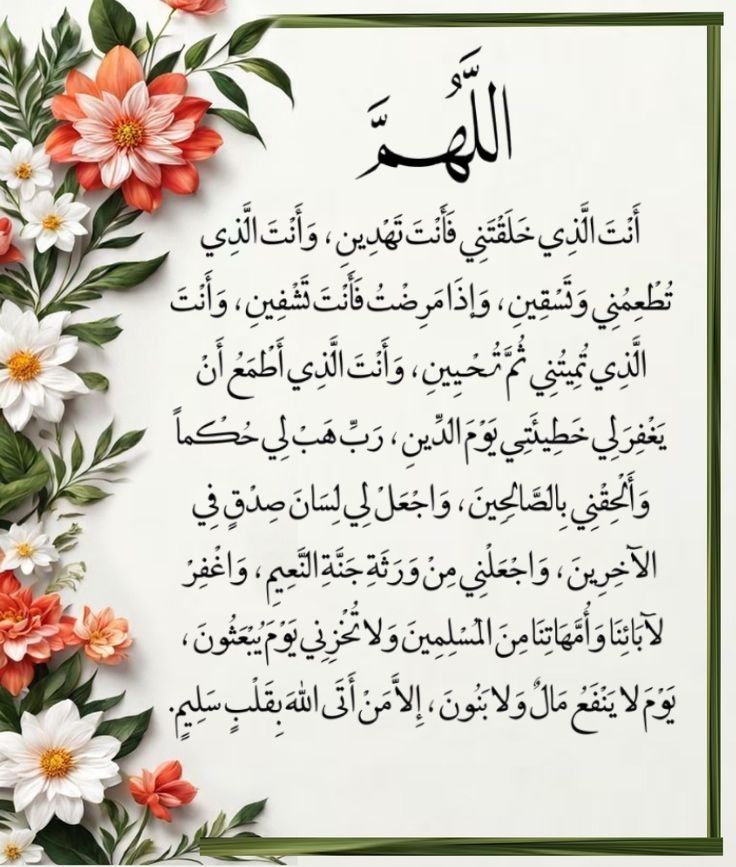 اللَّهُمَّ
أَنْتَ الَّذِي خَلَقْتَنِي فَأَنْتَ تَهْدِينِ، وَأَنْتَ الَّذِي
تُطْعِمُنِي وَتَسْقِينِ، وَإِذَا مَرِضْتُ فَأَنْتَ تَشْفِينِ، وَأَنْتَ
الَّذِي تُمِيتُنِي ثُمَّ تُحْيِينِ، وَأَنْتَ الَّذِي أَطْمَعُ أَنْ
يَغْفِرَ لِي خَطِيئَتِي يَوْمَ الدِّينِ، رَبِّ هَبْ لِي حُكْماً
وَأَلْحِقْنِي بِالصَّالِحِينَ، وَاجْعَلْ لِي لِسَانَ صِدْقٍ فِي
الآخِرِينَ، وَاجْعَلْنِي مِنْ وَرَثَةِ جَنَّةِ النَّعِيمِ، وَاغْفِرْ
لآبَائِنَا وَأُمَّهَاتِنَا مِنَ الْمُسْلِمِينَ وَلا تُخْزِنِي يَوْمَ يُبْعَثُونَ،
يَوْمَ لا يَنْفَعُ مَالٌ وَلا بَنُونَ، إِلاَّ مَنْ أَتَى اللهَ بِقَلْبٍ سَلِيمٍ.